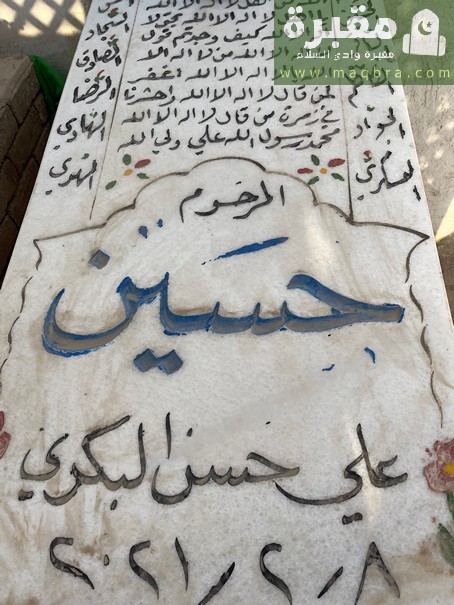 مقبرة
مقبرة وادي السلام
www.maqbra.com
لا اله الا الله
لا اله الا الله كيف وجدتم قول
لا اله الا الله من لا اله الا الله
لا اله الا الله اغفر
لمن قال لا اله الا الله واحشرنا
في زمرة من قال لا اله الا الله
محمد رسول الله علي ولي الله
السجاد
الصادق
الرضا
الهادي
المهدي
الجواد
العسكري
المرحوم
حسين
علي حسن البكري
٢٠٢١/٢/٨